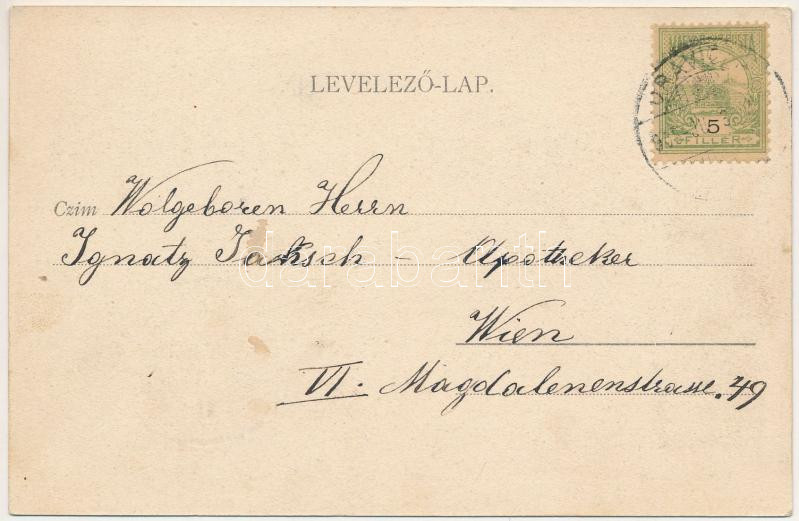 LEVELEZŐ-LAP.
MAGYAR KIR. POSTA
5
FILLÉR
Czím Wolgeboren Herrn
Ignatz Jaksch – Apotheker
darabanth
Wien
VI. Magdalenenstrasse. 49